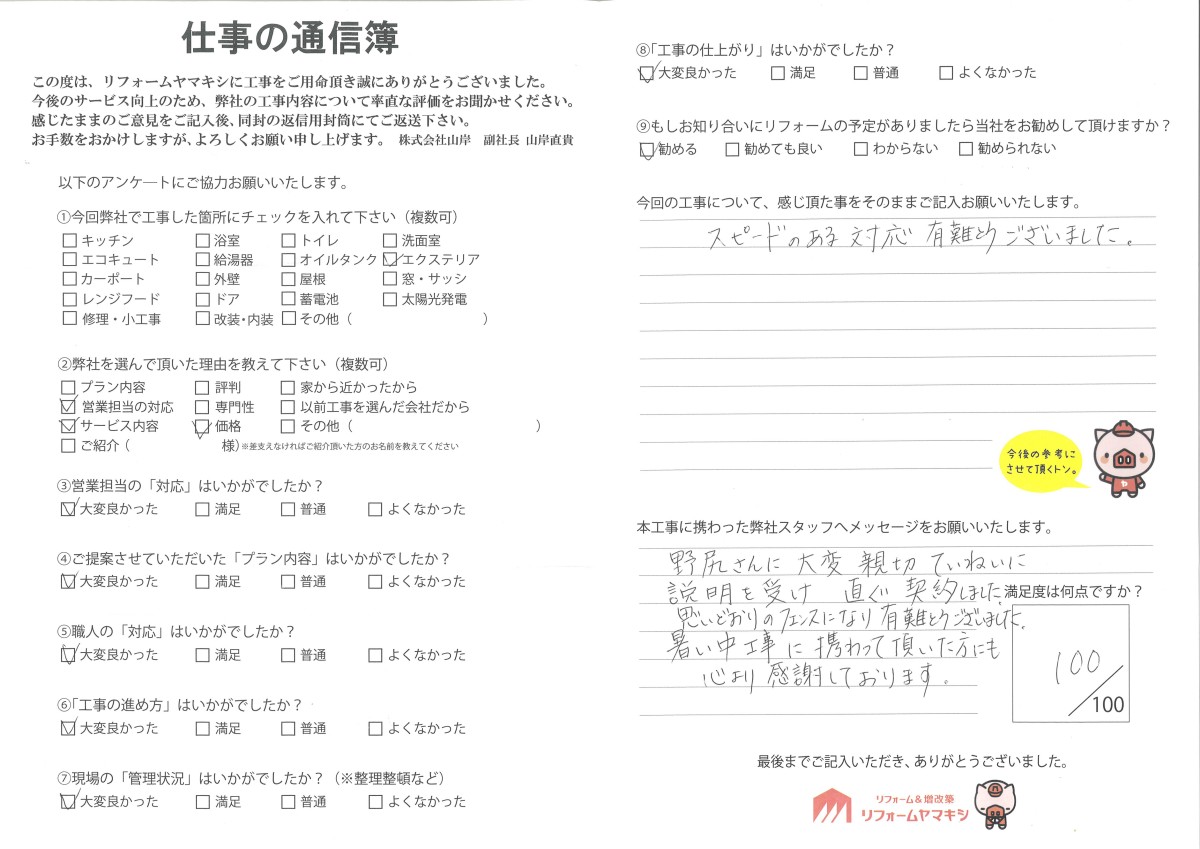 仕事の通信簿
この度は、リフォームヤマキシに工事をご用命頂き誠にありがとうございました。
今後のサービス向上のため、弊社の工事内容について率直な評価をお聞かせください。
感じたままのご意見をご記入後、同封の返信用封筒にてご返送下さい。
お手数をおかけしますが、よろしくお願い申し上げます。 株式会社山岸 副社長 山岸直貴
以下のアンケートにご協力お願いいたします。
①今回弊社で工事した箇所にチェックを入れて下さい（複数可）
□キッチン □浴室 □トイレ □洗面室
□エコキュート □給湯器 □オイルタンク ☑エクステリア
□カーポート □外壁 □屋根 □窓・サッシ
□レンジフード □ドア □蓄電池 □太陽光発電
□修理・小工事 □改装・内装 □その他（ ）
②弊社を選んで頂いた理由を教えて下さい（複数可）
□プラン内容 □評判 □家から近かったから
☑営業担当の対応 □専門性 □以前工事を選んだ会社だから
☑サービス内容 ☑価格 □その他（ ）
□ご紹介（ 様）※差支えなければご紹介頂いた方のお名前を教えてください
③営業担当の「対応」はいかがでしたか？
☑大変良かった □満足 □普通 □よくなかった
④ご提案させていただいた「プラン内容」はいかがでしたか？
☑大変良かった □満足 □普通 □よくなかった
⑤職人の「対応」はいかがでしたか？
☑大変良かった □満足 □普通 □よくなかった
⑥「工事の進め方」はいかがでしたか？
☑大変良かった □満足 □普通 □よくなかった
⑦現場の「管理状況」はいかがでしたか？（※整理整頓など）
☑大変良かった □満足 □普通 □よくなかった
⑧「工事の仕上がり」はいかがでしたか？
☑大変良かった □満足 □普通 □よくなかった
⑨もしお知り合いにリフォームの予定がありましたら当社をお勧めして頂けますか？
☑勧める □勧めても良い □わからない □勧められない
今回の工事について、感じ頂た事をそのままご記入お願いいたします。
スピードのある対応 有難とうございました。
今後の参考に
させて頂くトン。
本工事に携わった弊社スタッフへメッセージをお願いいたします。
野尻さんに 大変 親切 ていねいに
説明を受け 直ぐ 契約しました
思いどおりのフェンスになり 有難とうございました。
暑い中工事に携わって頂いた方にも
心より 感謝しております。
満足度は何点ですか？
100
/100
最後までご記入いただき、ありがとうございました。
リフォーム＆増改築
リフォームヤマキシ